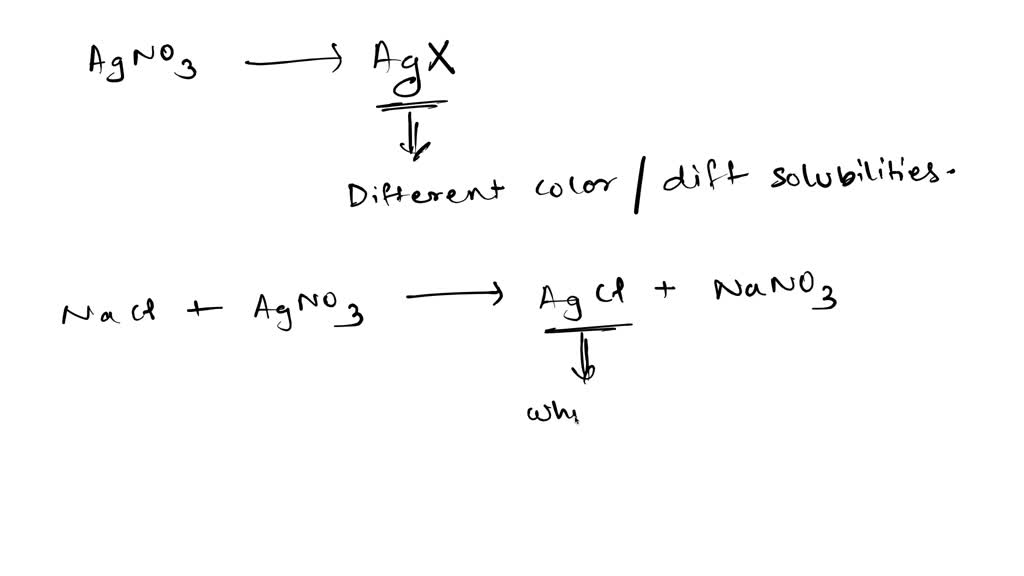 AgNO3 → AgX
Different color / diff solubilities.
NaCl + AgNO3 → AgCl + NaNO3
whi